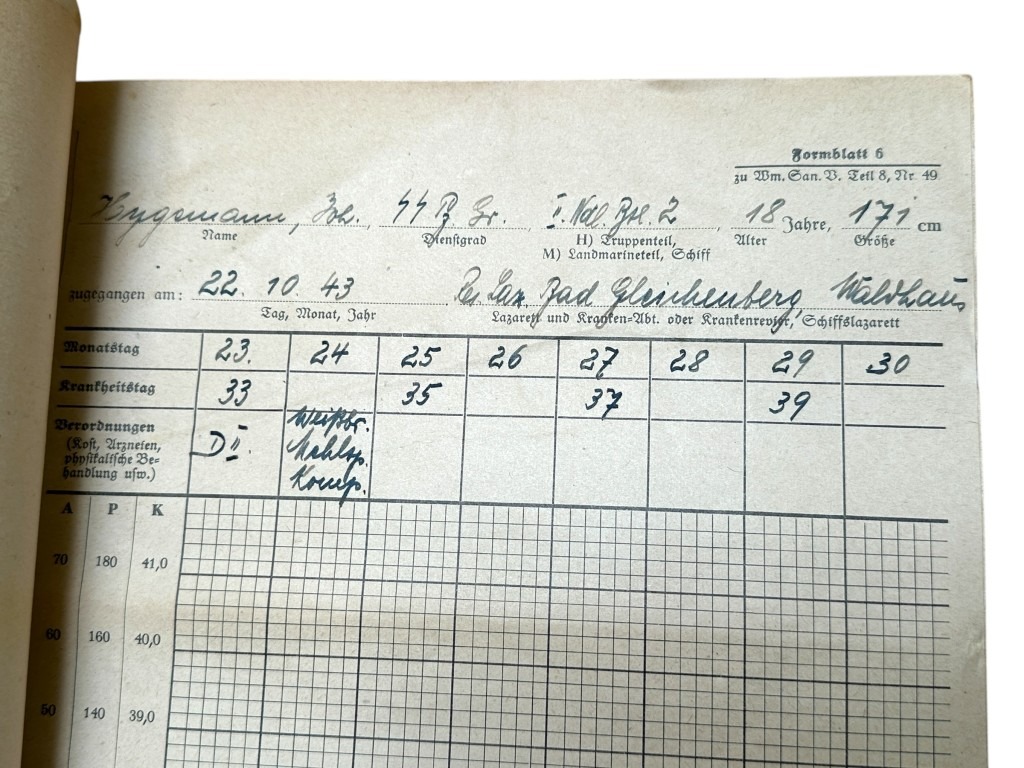 Formblatt 6
zu Wm. San. V. Teil 8, Nr. 49
Hygemann, Joh. SS Pz Gr. II. Ndl. Btl. 2, 18 Jahre, 171 cm
Name Dienstgrad H) Truppenteil, Alter Größe
M) Landmarineteil, Schiff
zugegangen am: 22. 10. 43 Res Laz. Bad Gleichenberg, Waldhaus
Tag, Monat, Jahr Lazarett und Kranken-Abt. oder Krankenrevier, Schiffslazarett
Monatstag 23. 24 25 26 27 28 29 30
Krankheitstag 33 35 37 39
Verordnungen
(Kost, Arzneien,
physikalische Be-
handlung usw.)
D II.
Weißbr.
Mehlsp.
Komp.
A P K
70 180 41,0
60 160 40,0
50 140 39,0